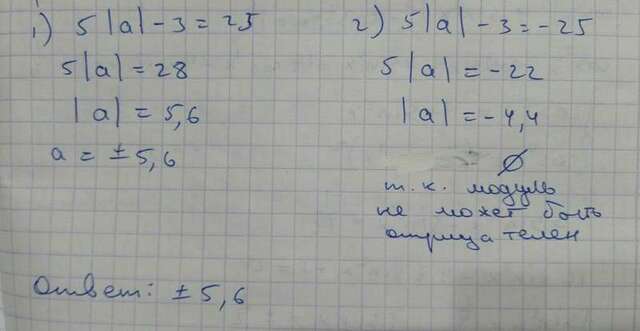 1) 5|a| - 3 = 25
5|a| = 28
|a| = 5,6
a = ± 5,6
2) 5|a| - 3 = -25
5|a| = -22
|a| = -4,4
∅
т.к. модуль
не может быть
отрицателен
Ответ: ± 5,6